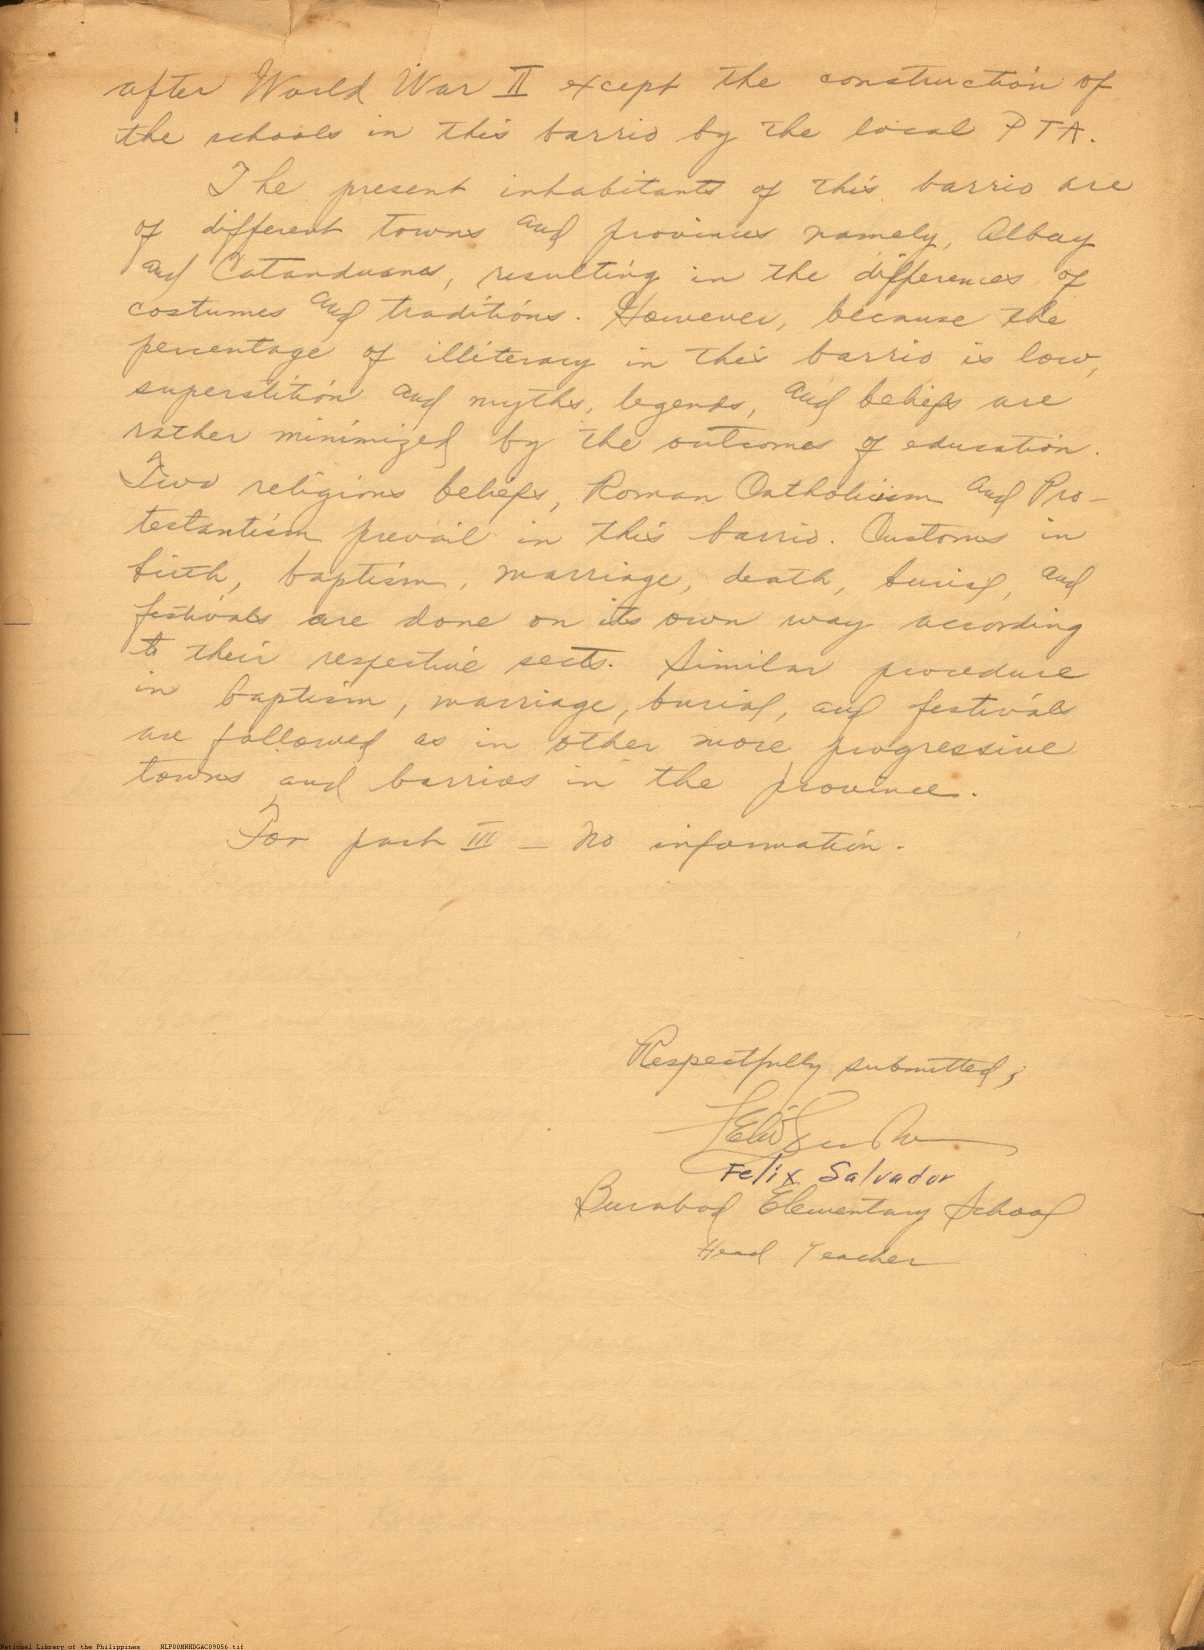 after World War II except the construction of
the schools in this barrio by the local PTA.
The present inhabitants of this barrio are
of different towns and provinces namely, Albay
and Catanduanes, resulting in the differences of
costumes and traditions. However, because the
percentage of illiteracy in this barrio is low,
superstition and myths, legends, and beliefs are
rather minimized by the outcomes of education.
Two religions beliefs, Roman Catholicism and Pro-
testantism prevail in this barrio. Customs in
birth, baptism, marriage, death, burial, and
festivals are done on its own way according
to their respective sects. Similar procedure
in baptism, marriage, burial, and festivals
are followed as in other more progressive
towns and barrios in the province.
For part III — No information.
Respectfully submitted,
Felix Salvador
Burabod Elementary School
Head Teacher
National Library of the Philippines NLP00MNHDGAC09056.tif